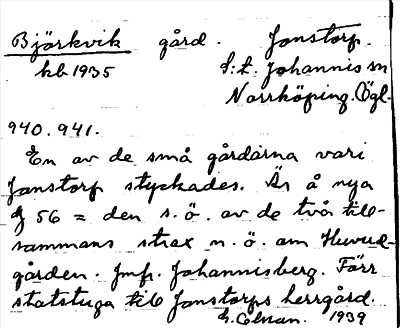 Björkvik gård. Jonstorp.
kb 1935 S:t. Johannis sn
Norrköping. Ögl.
940. 941.
En av de små gårdarna vari
Jonstorp styckades. Är å nya
56 = den s. ö. av de två till-
sammans strax n. ö. om Huvud-
gården. Jmf. Johannisberg. Förr
statstuga till Jonstorps herrgård.
1939